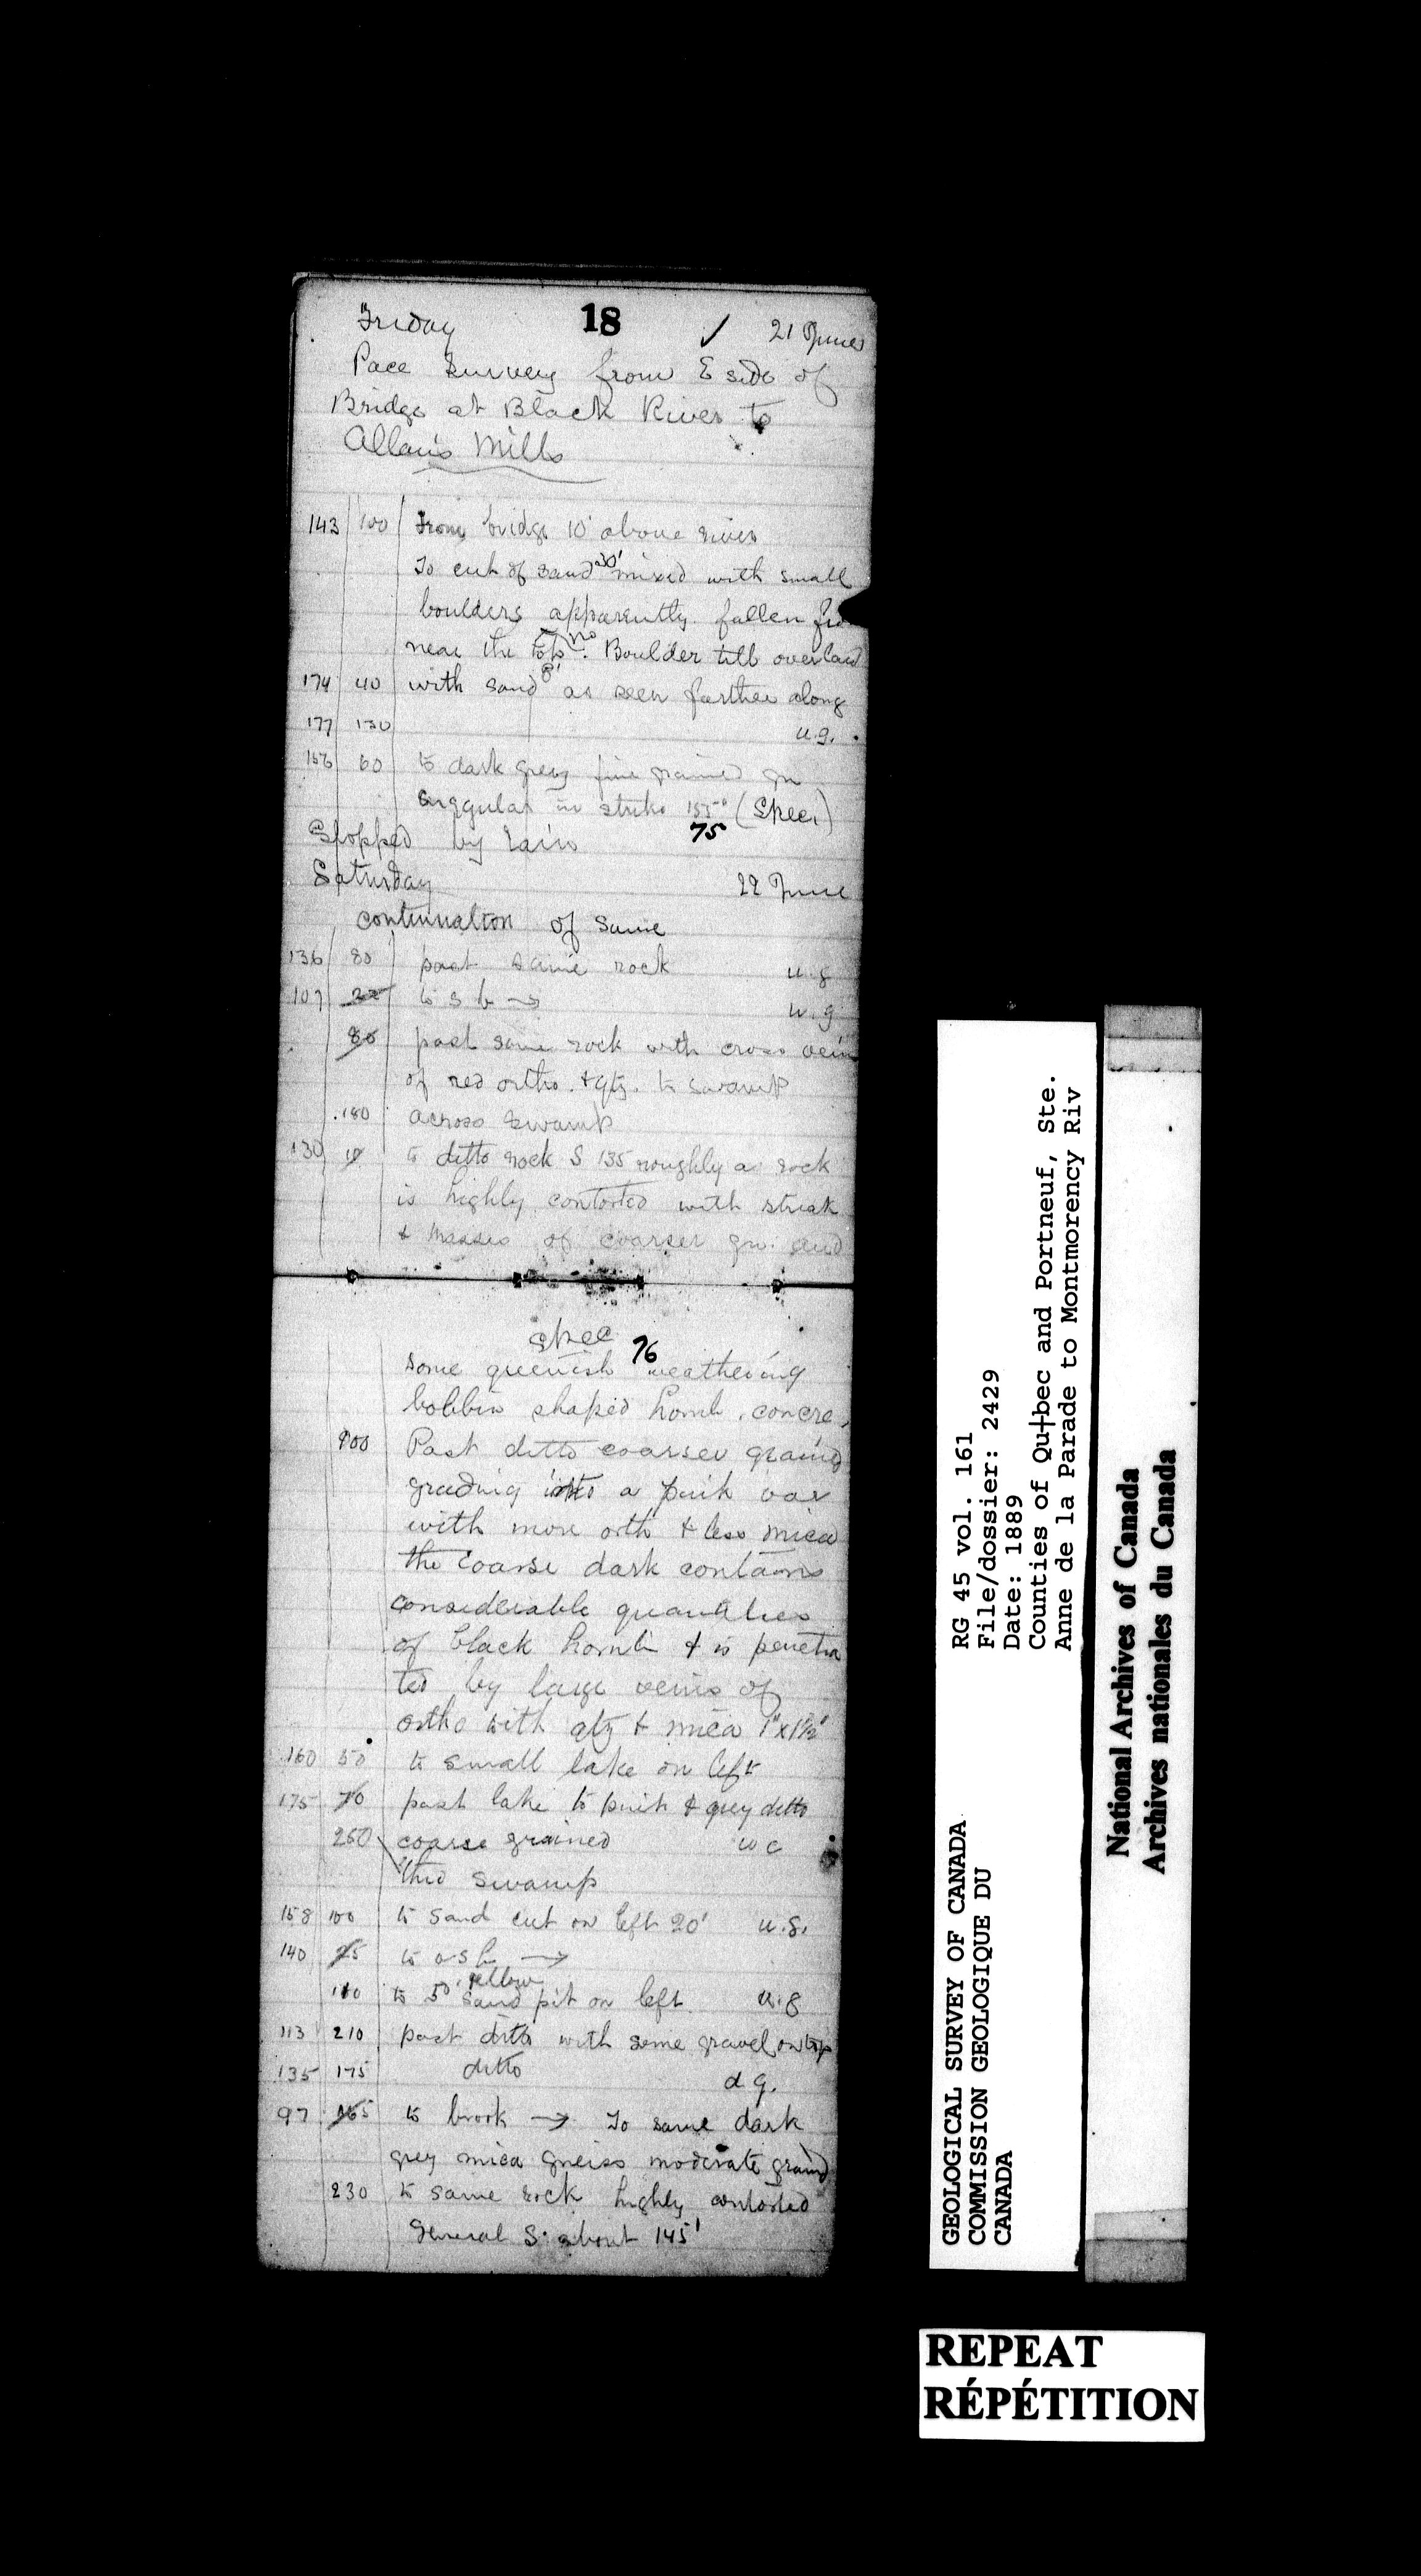 Friday 18 ✓ 21 June
Pace Survey from E side of
Bridge at Black River to
Allan's Mills
143 100 From bridge 10' above river
To cut of sand 30' mixed with small
boulders apparently fallen fro
near the top. no Boulder till overlaid
174 40 with sand 8' as seen further along
177 130 u.g.
156 60 to dark grey fine grained gn
irregular in strike 155° (Spec.)
75
Stopped by rain
Saturday 22 June
continuation of same
136 80 past same rock u.g
107 to s b → u.g
80 past same rock with cross vein
of red ortho. + qtz. to swamp
180 across swamp
130 10 to ditto rock S 135 roughly as rock
is highly contorted with streak
& masses of coarser gn. and
spec 76
some greenish weathering
bobbin shaped hornb. concre.
900 Past ditto coarser grained
grading into a pink var
with more orth & less mica
the coarse dark contains
considerable quantities
of black hornb & is penetra
ted by large veins of
ortho with qtz & mica 1"x1½'
160 50 to small lake on left
175 70 past lake to pink & grey ditto
260 coarse grained
thro swamp
158 100 to sand cut on left 20' u.g.
140 25 to a s b →
110 to 50' yellow sand pit on left u.g
113 210 past ditto with some gravel on top
135 175 ditto d g.
97 165 to brook → To same dark
grey mica gneiss moderate graind
230 to same rock highly contorted
General S. about 145'
RG 45 vol. 161
File/dossier: 2429
Date: 1889
Counties of Qu┼bec and Portneuf, Ste.
Anne de la Parade to Montmorency Riv
GEOLOGICAL SURVEY OF CANADA
COMMISSION GEOLOGIQUE DU
CANADA
National Archives of Canada
Archives nationales du Canada
REPEAT
RÉPÉTITION